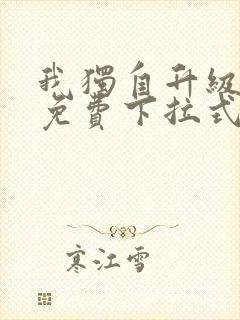 我獨自升級
免費下拉式
寒江雪